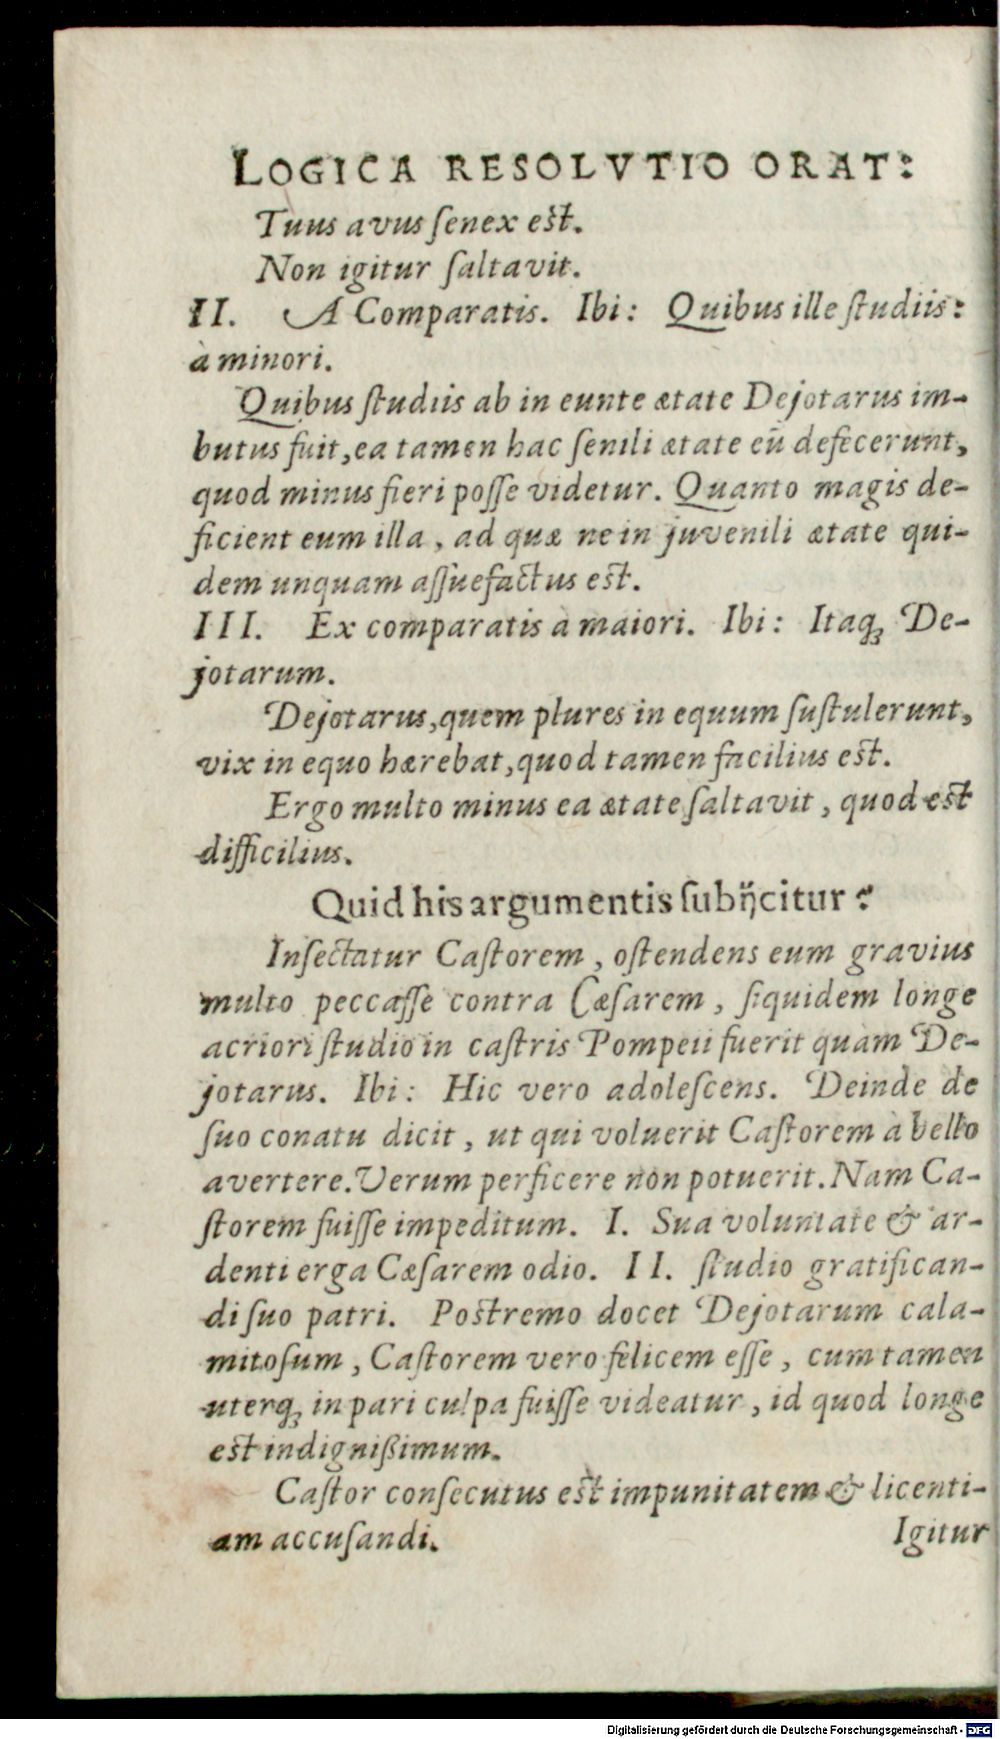 LOGICA RESOLVTIO ORAT:
Tuus avus ſenex eſt.
Non igitur ſaltavit.
II. A Comparatis. Ibi: Quibus ille ſtudiis:
à minori.
Quibus ſtudiis ab in eunte ætate Dejotarus im-
butus fuit, ea tamen hac ſenili ætate eū defecerunt,
quod minus fieri poſſe videtur. Quanto magis de-
ficient eum illa, ad quæ ne in juvenili ætate qui-
dem unquam aſſuefactus eſt.
III. Ex comparatis à maiori. Ibi: Itaq; De-
jotarum.
Dejotarus, quem plures in equum ſuſtulerunt,
vix in equo hærebat, quod tamen facilius eſt.
Ergo multo minus ea ætate ſaltavit, quod eſt
difficilius.
Quid his argumentis ſubijcitur?
Inſectatur Caſtorem, oſtendens eum gravius
multo peccaſſe contra Cæſarem, ſiquidem longe
acriori ſtudio in caſtris Pompeii fuerit quàm De-
jotarus. Ibi: Hic vero adoleſcens. Deinde de
ſuo conatu dicit, ut qui voluerit Caſtorem à bello
avertere. Verum perficere non potuerit. Nam Ca-
ſtorem fuiſſe impeditum. I. Sua voluntate & ar-
denti erga Cæſarem odio. II. ſtudio gratifican-
di ſuo patri. Poſtremo docet Dejotarum cala-
mitoſum, Caſtorem vero felicem eſſe, cum tamen
uterq; in pari culpa fuiſſe videatur, id quod longe
eſt indignißimum.
Caſtor conſecutus eſt impunitatem & licenti-
am accuſandi.
Igitur
Digitalisierung gefördert durch die Deutsche Forschungsgemeinschaft - DFG